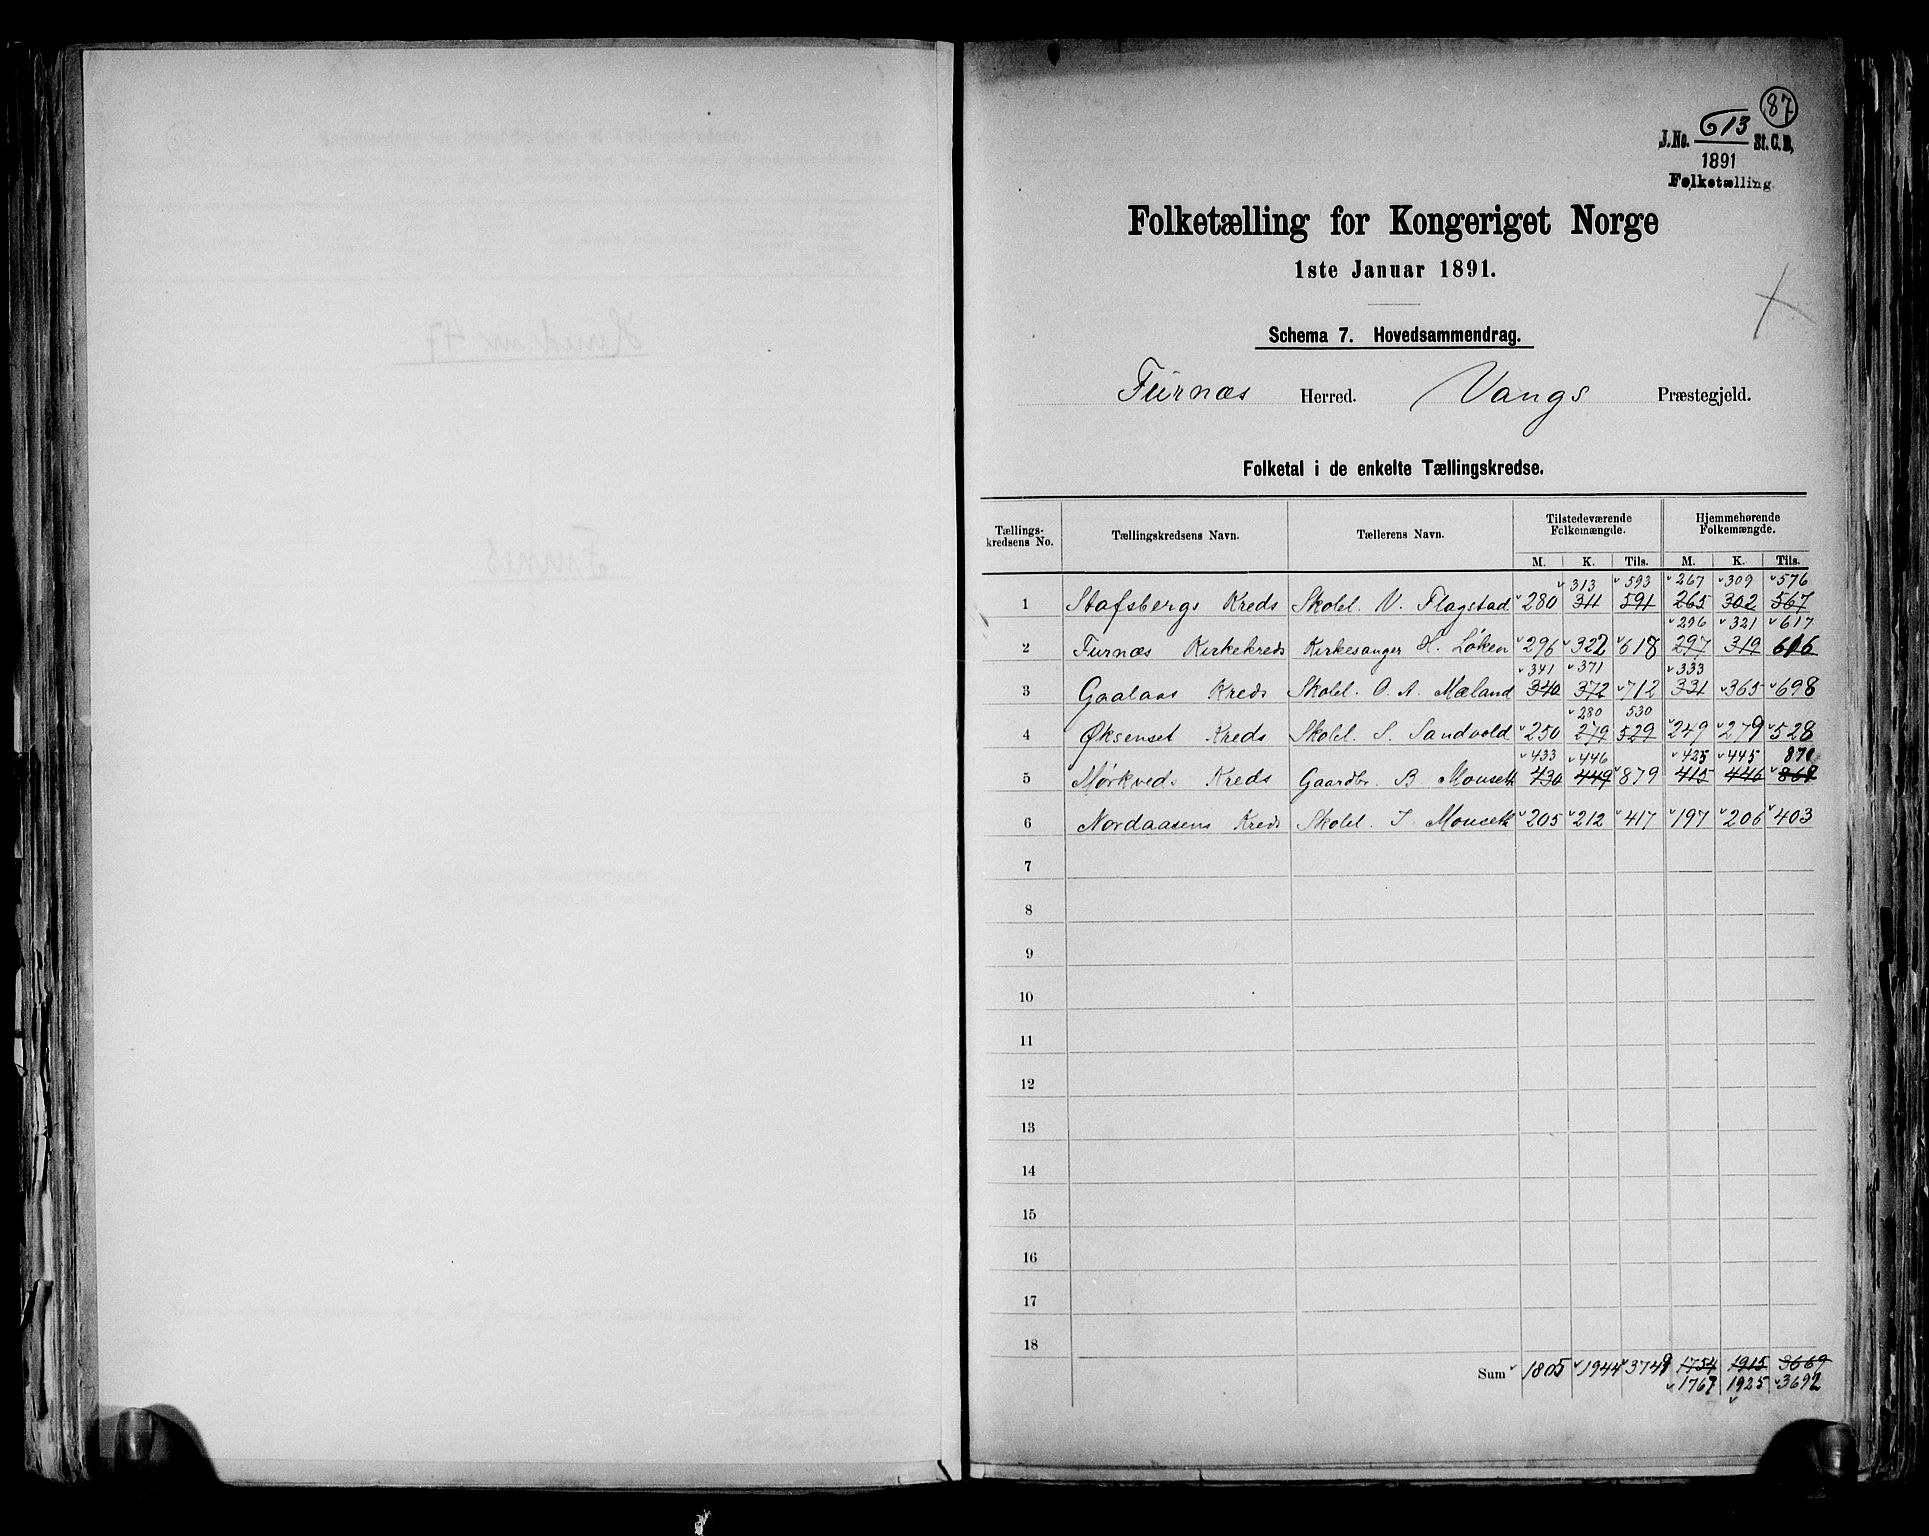 87
J.No. 613 St.C.B.
1891
Folketælling
Folketælling for Kongeriget Norge
1ste Januar 1891.
Schema 7. Hovedsammendrag.
Furnæs Herred. Vangs Præstegjeld.
Folketal i de enkelte Tællingskredse.
Tællings-kredsens No. Tællingskredsens Navn. Tællerens Navn. Tilstedeværende Folkemængde. Hjemmehørende Folkemængde.
M. K. Tils. M. K. Tils.
313 593 267 309 576
1 Stafsbergs Kreds Skolel. N. Flagstad 280 311 591 265 302 567
296 321 617
2 Furnæs Kirkekreds Kirkesanger H. Løken 296 322 618 297 319 616
341 371 333
3 Gaalaas Kreds Skolel. O. A. Mæland 340 372 712 331 365 698
280 530
4 Øksenset Kreds Skolel. S. Sandvold 250 279 529 249 279 528
433 446 425 445 870
5 Mørkveds Kreds Gaardbr. B. Monseth 430 449 879 415 446
6 Nordaasens Kreds Skolel. J. Monseth 205 212 417 197 206 403
7
8
9
10
11
12
13
14
15
16
17
18
Sum 1805 1944 3749 1754 1915 3669
1767 1925 3692